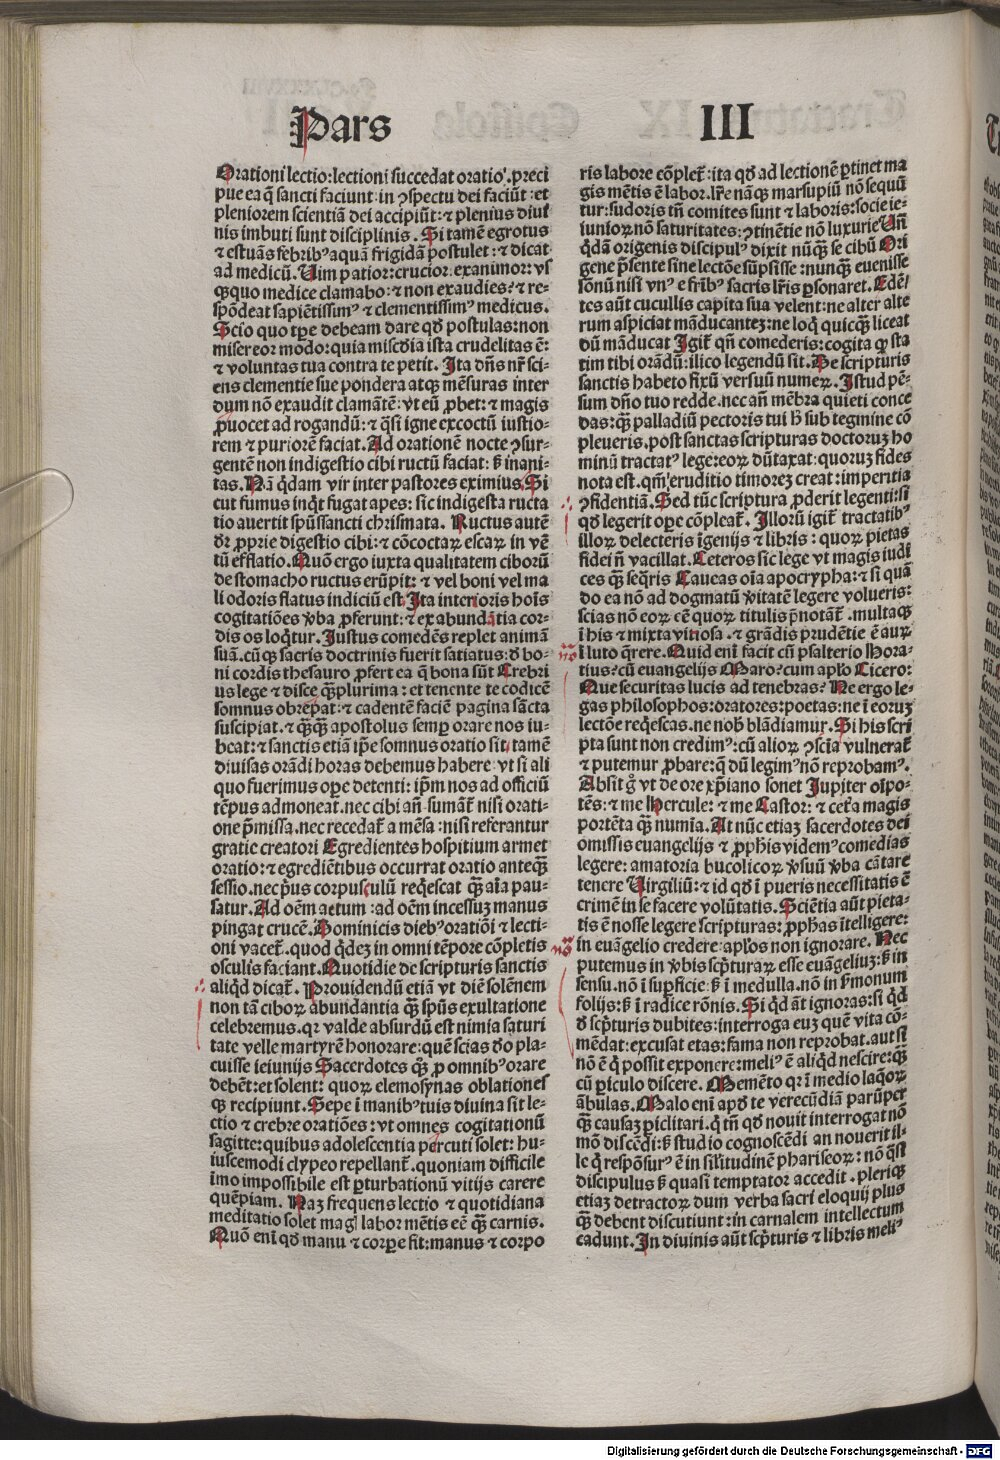 Pars III
Orationi lectio: lectioni succedat oratio. preci
pue ea q̄ sancti faciunt: in ꝯspectu dei faciūt: et
pleniorem scientiā dei accipiūt: ⁊ plenius diui
nis imbuti sunt disciplinis. Si tamē egrotus
⁊ estuās febribꝰ aquā frigidā postulet: ⁊ dicat
ad medicū. Uim patior: crucior. exanimor: vs
q̄quo medice clamabo: ⁊ non exaudies? ⁊ re-
spōdeat sapiētissimꝰ ⁊ clementissimꝰ medicus.
Scio quo tꝑe debeam dare qđ postulas: non
misereor modo: quia miscđia ista crudelitas ē:
⁊ voluntas tua contra te petit. Ita dn̄s nr̄ sci-
ens clementie sue pondera atqꝫ mēsuras inter
dum nō exaudit clamātē: vt eū ꝓbet: ⁊ magis
ꝓuocet ad rogandū: ⁊ q̄si igne excoctū iustio-
rem ⁊ puriorē faciat. Ad orationē nocte ꝯsur-
gentē non indigestio cibi ructū faciat: ß inani-
tas. Nā q̇dam vir inter pastores eximius. Si
cut fumus inq̇t fugat apes: sic indigesta ructa
tio auertit spūssancti chrismata. Ructus autē
dr̄ ꝓprie digestio cibi: ⁊ cōcoctaꝝ escaꝝ in vē
tū efflatio. Quō ergo iuxta qualitatem ciborū
de stomacho ructus erūpit: ⁊ vel boni vel ma
li odoris flatus indiciū est. Ita interioris hoīs
cogitatiōes v̓ba ꝓferunt: ⁊ ex abundātia cor-
dis os loq̇tur. Justus comedēs replet animā
suā. cū qꝫ sacris doctrinis fuerit satiatus: đ bo-
ni cordis thesauro ꝓfert ea q̄ bona sūt Crebri
us lege ⁊ disce q̄ꝫplurima: et tenente te codicē
somnus obrepat: ⁊ cadentē faciē pagina sācta
suscipiat. ⁊ q̄ꝫq̄ꝫ apostolus semꝑ orare nos iu-
beat: ⁊ sanctis etiā ip̄e somnus oratio sit. tamē
diuisas orādi horas debemus habere vt si ali
quo fuerimus oꝑe detenti: ip̄m nos ad officiū
tēpus admoneat. nec cibi añ sumāt̃ nisi orati-
one p̄missa. nec recedat̃ a mēsa: nisi referantur
gratie creatori Egredientes hospitium armet
oratio: ⁊ egrediētibus occurrat oratio anteq̄ꝫ
sessio. nec p̓us corpusculū req̇escat q̄ꝫ aīa pau-
satur. Ad oēm actum: ad oēm incessuꝫ manus
pingat crucē. Dominicis diebꝰ oratiōi ⁊ lecti-
oni vacet̃. quod q̇deꝫ in omni tēpore cōpletis
osculis faciant. Quotidie de scripturis sanctis
aliq̇d dicat̃. Prouidendū etiā vt diē solēnem
non tā ciboꝝ abundantia q̄ꝫ spūs exultatione
celebremus. qꝛ valde absurdū est nimia saturi
tate velle martyrē honorare: quē scias đo pla-
cuisse ieiunijs Sacerdotes q̓ꝫ ꝓ omnibꝰ orare
debēt: et solent: quoꝝ elemosynas oblationes
qꝫ recipiunt. Sepe ī manibꝰ tuis diuina sit le-
ctio ⁊ crebre oratiōes: vt omnes cogitationū
sagitte: quibus adolescentia percuti solet: hu-
iuscemodi clypeo repellant̃. quoniam difficile
īmo impossibile est ꝑturbationū vitijs carere
quēpiam. Naꝫ frequens lectio ⁊ quotidiana
meditatio solet magꝭ labor mētis eē q̄ꝫ carnis.
Quō enī qđ manu ⁊ corꝑe fit: manus ⁊ corpo
ris labore cōplet̃: ita qđ ad lectionē ꝑtinet ma
gis mētis ē labor. lr̄e nāqꝫ marsupiū nō sequū
tur: sudoris tn̄ comites sunt ⁊ laboris: socie ie-
iunioꝝ nō saturitates: ꝯtinētie nō luxurie Uñ
q̇dā origenis discipulꝰ dixit nūq̄ꝫ se cibū Ori
gene p̄sente sine lectōe sūpsisse: nunq̄ꝫ euenisse
sōnū nisi vnꝰ e fr̄ibꝰ sacris lr̄is ꝑsonaret. Edē-
tes aūt cucullis capita sua velent: ne alter alte
rum aspiciat māducanteꝫ: ne loq̇ quicq̄ꝫ liceat
dū māducat Igit̃ qñ comederis: cogita ꝙ sta
tim tibi orādū: ilico legendū sit. De scripturis
sanctis habeto fixū versuū numeꝝ. Istud pē-
sum dño tuo redde. nec añ mēbra quieti conce
das: q̄ꝫ palladiū pectoris tui h̄ sub tegmine cō
pleueris. post sanctas scripturas doctoruꝫ ho
minū tractatꝰ lege: eoꝝ dūtaxat: quoruꝫ fides
nota est. qm̄ eruditio timoreꝫ creat: imperitia
ꝯfidentiā. Sed tūc scriptura ꝓderit legenti: si
qđ legerit oꝑe cōpleat̃. Illorū igit̃ tractatibꝰ
illoꝝ delecteris īgenijs ⁊ libris: quoꝝ pietas
fidei n̄ vacillat. Ceteros sic lege vt magis iudi
ces q̄ꝫ seq̇ris Caueas oīa apocrypha: ⁊ si quā
do ea nō ad dogmatū v̓itatē legere volueris:
scias nō eoꝝ cē quoꝝ titulis p̄notāt̃. multaqꝫ
ī his ⁊ mixta vitiosa. ⁊ grādis prudētie ē auꝝ
ī luto q̄rere. Quid enī facit cū psalterio Hora-
tius? cū euangelijs Maro? cum apl̓o Cicero:
Que securitas lucis ad tenebras? Ne ergo le-
gas philosophos: oratores: poetas: ne ī eoruꝫ
lectōe req̇escas. ne nob̓ blādiamur. Si his scri
pta sunt non credimꝰ: cū alioꝝ ꝯscīa vulnerat̃
⁊ putemur ꝓbare: q̄ dū legimꝰ nō reprobamꝰ.
Absit g̊ vt de ore xp̄iano sonet Jupiter oīpo-
tēs: ⁊ me Hercule: ⁊ me Castor: ⁊ ceťa magis
portēta q̄ꝫ numīa. At nūc etiaꝫ sacerdotes dei
omissis euangelijs ⁊ ꝓphīs videmꝰ comedias
legere: amatoria bucolicoꝝ v̓suū v̓ba cātare
tenere Uirgiliū: ⁊ id qđ ī pueris necessitatis ē
crimē in se facere volūtatis. Sciētia aūt pieta-
tis ē nosse legere scripturas: ꝓphās ītelligere:
in euāgelio credere: apl̓os non ignorare. Nec
putemus in v̓bis scp̄turaꝝ esse euāgeliuꝫ: ß in
sensu. nō ī suꝑficie: ß ī medulla. nō in s̓monum
folijs: ß ī radice rōnis. Si q̇d āt ignoras: si q̇d
đ scp̄turis dubites: interroga euꝫ quē vita cō-
mēdat: excusat etas: fama non reprobat. aut si
nō ē q̇ possit exponere: meliꝰ ē aliq̇d nescire: q̄ꝫ
cū ꝑiculo discere. Memēto qꝛ ī medio laq̄oꝝ
ābulas. Malo enī apđ te verecūdiā parūꝑ
q̄ꝫ causaꝫ ꝑiclitari. q̇ tn̄ qđ nouit interrogat nō
mō discēdi: ß studio cognoscēdi an nouerit il-
le q̇ respōsurꝰ ē in sil̓itudinē phariseoꝝ: nō q̄si
discipulus ß quasi temptator accedit. pleriqꝫ
etiaꝫ detractoꝝ dum verba sacri eloquij plus
q̄ꝫ debent discutiunt: in carnalem intellectum
cadunt. In diuinis aūt scp̄turis ⁊ libris meliꝰ
Digitalisierung gefördert durch die Deutsche Forschungsgemeinschaft - DFG